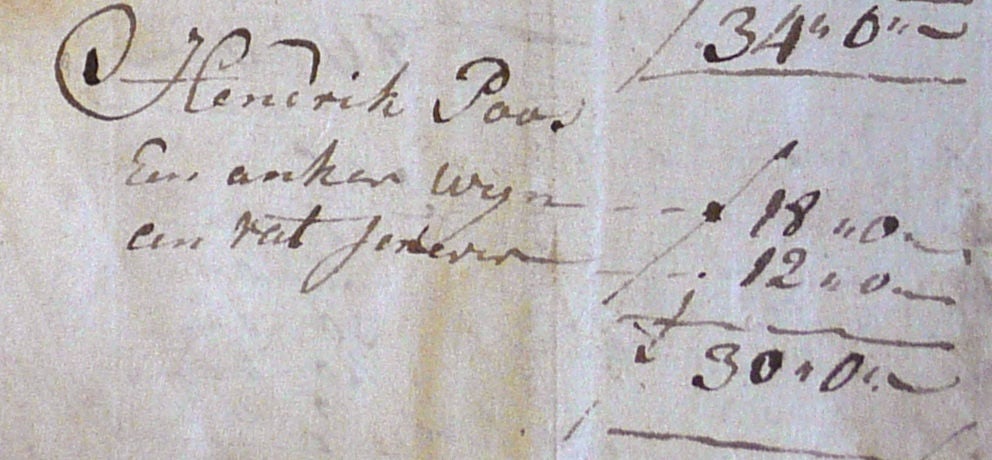 34 " 0 " —
Hendrik Poos
Een anker wyn — — ƒ 18 " 0 " —
een vat Jenever — — 12 " 0 " —
ƒ 30 " 0 " —